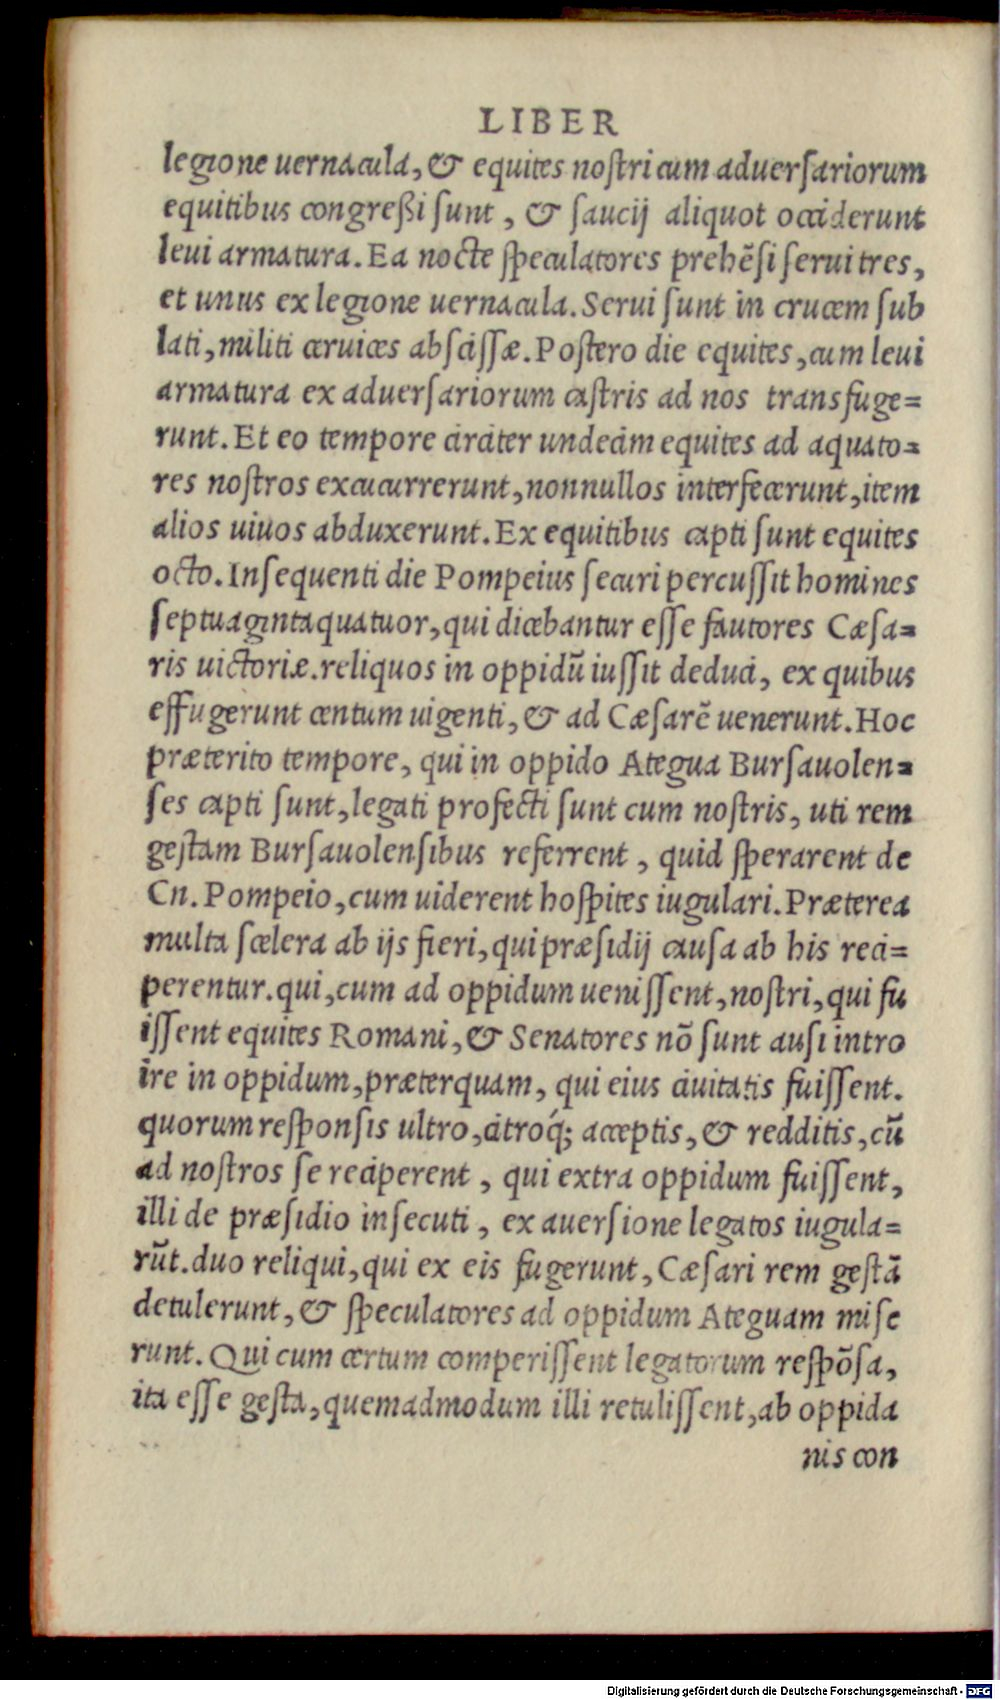 LIBER
legione uernacula, & equites nostri cum aduersariorum
equitibus congreßi sunt, & saucij aliquot occiderunt
leui armatura. Ea nocte speculatores prehẽsi serui tres,
et unus ex legione uernacula. Serui sunt in crucem sub
lati, militi ceruices abscissæ. Postero die equites, cum leui
armatura ex aduersariorum castris ad nos transfuge=
runt. Et eo tempore circiter undecim equites ad aquato=
res nostros excucurrerunt, nonnullos interfecerunt, item
alios uiuos abduxerunt. Ex equitibus capti sunt equites
octo. Insequenti die Pompeius securi percussit homines
septuagintaquatuor, qui dicebantur esse fautores Cæsa=
ris uictoriæ. reliquos in oppidũ iussit deduci, ex quibus
effugerunt centum uigenti, & ad Cæsarẽ uenerunt. Hoc
præterito tempore, qui in oppido Ategua Bursauolen=
ses capti sunt, legati profecti sunt cum nostris, uti rem
gestam Bursauolensibus referrent, quid sperarent de
Cn. Pompeio, cum uiderent hospites iugulari. Præterea
multa scelera ab ijs fieri, qui præsidij causa ab his reci=
perentur. qui, cum ad oppidum uenissent, nostri, qui fu
issent equites Romani, & Senatores nõ sunt ausi intro
ire in oppidum, præterquam, qui eius ciuitatis fuissent.
quorum responsis ultro, citroq́; acceptis, & redditis, cũ
ad nostros se reciperent, qui extra oppidum fuissent,
illi de præsidio insecuti, ex auersione legatos iugula=
rũt. duo reliqui, qui ex eis fugerunt, Cæsari rem gestã
detulerunt, & speculatores ad oppidum Ateguam mise
runt. Qui cum certum comperissent legatorum respõsa,
ita esse gesta, quemadmodum illi retulissent, ab oppida
nis con
Digitalisierung gefördert durch die Deutsche Forschungsgemeinschaft - DFG